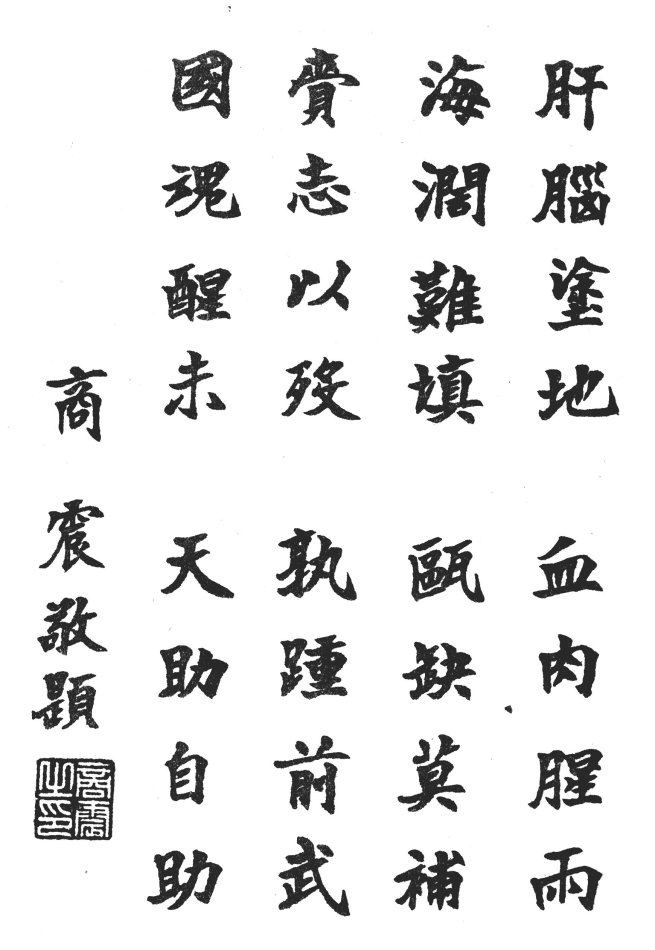 肝腦塗地 血肉腥雨
海濶難填 甌缺莫補
賫志以歿 孰踵前武
國魂醒未 天助自助
商震敬題
商震之印